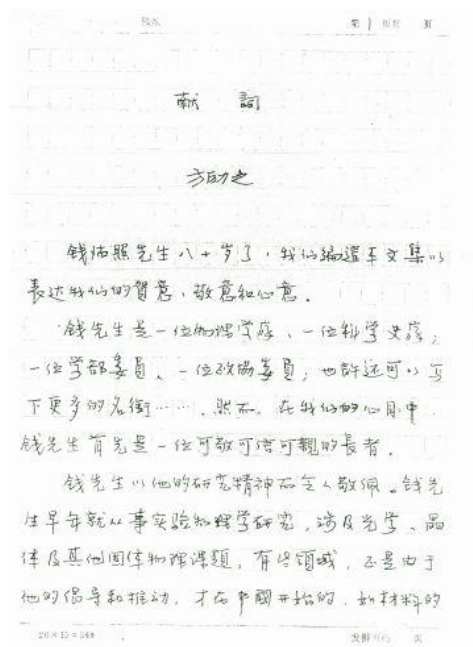 第 1 页
献 詞
方励之
钱临照先生八十岁了，我们编這本文集以
表达我们的賀意、敬意和心意。
钱先生是一位物理学家、一位科学史家，
一位学部委員、一位政協委員，也許还可以写
下更多的名銜……。然而，在我们的心目中，
钱先生首先是一位可敬可信可親的長者。
钱先生以他的研究精神而令人敬佩。钱先
生早年就从事实验物理学研究，涉及光学、晶
体及其他固体物理课题，有些領域，正是由于
他的倡导和推动，才在中國开始的，如材料的
20×15=300